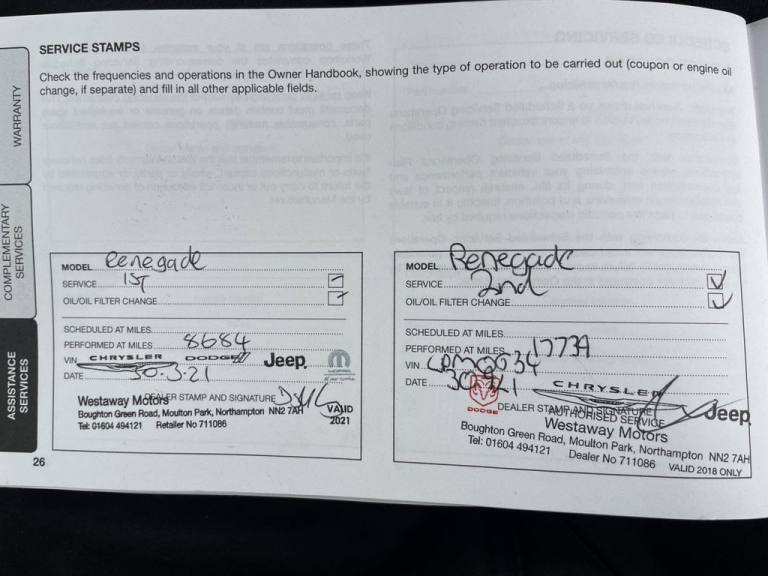 SERVICE STAMPS
Check the frequencies and operations in the Owner Handbook, showing the type of operation to be carried out (coupon or engine oil
change, if separate) and fill in all other applicable fields.
WARRANTY
COMPLEMENTARY
SERVICES
ASSISTANCE
SERVICES
MODEL Renegade
SERVICE 1ST
OIL/OIL FILTER CHANGE
SCHEDULED AT MILES
PERFORMED AT MILES 8684
VIN CHRYSLER DODGE Jeep
DATE 30.3.21
DEALER STAMP AND SIGNATURE
Westaway Motors
Boughton Green Road, Moulton Park, Northampton NN2 7AH
Tel: 01604 494121 Retailer No 711086
VALID
2021
MODEL Renegade
SERVICE 2nd
OIL/OIL FILTER CHANGE
SCHEDULED AT MILES
PERFORMED AT MILES 17739
VIN
DATE
DODGE
CHRYSLER
Jeep
DEALER STAMP AND SIGNATURE
AUTHORISED SERVICE
Westaway Motors
Boughton Green Road, Moulton Park, Northampton NN2 7AH
Tel: 01604 494121 Dealer No 711086 VALID 2018 ONLY
26